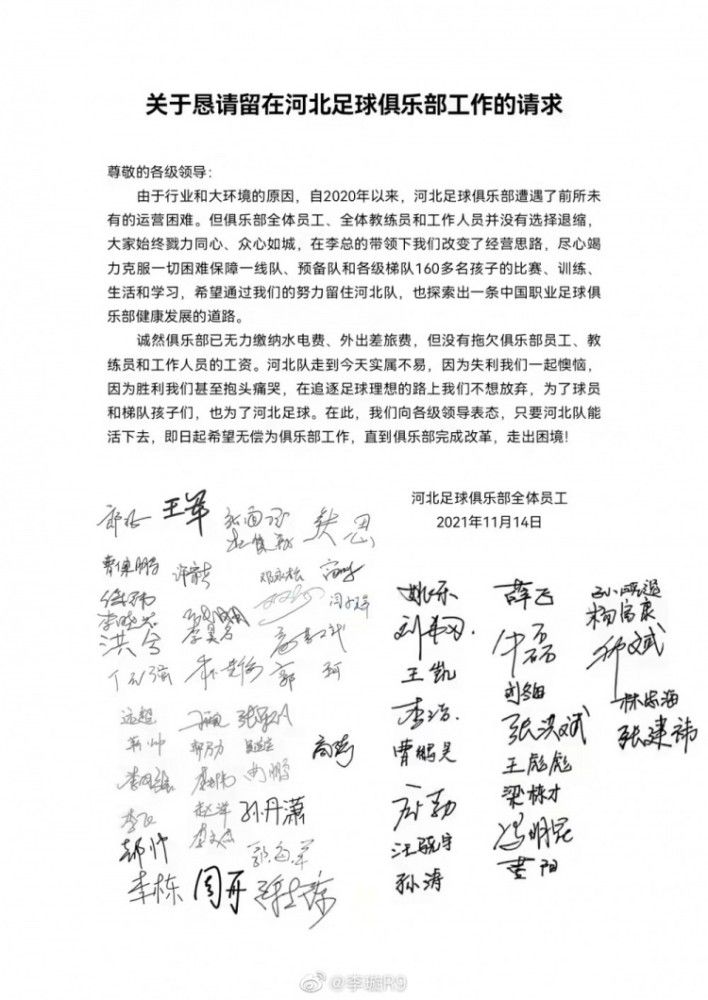 关于恳请留在河北足球俱乐部工作的请求
尊敬的各级领导:
由于行业和大环境的原因，自2020年以来，河北足球俱乐部遭遇了前所未
有的运营困难。但俱乐部全体员工、全体教练员和工作人员并没有选择退缩，
大家始终戮力同心、众心如城，在李总的带领下我们改变了经营思路，尽心竭
力克服一切困难保障一线队、预备队和各级梯队160多名孩子的比赛、训练、
生活和学习，希望通过我们的努力留住河北队，也探索出一条中国职业足球俱
乐部健康发展的道路。
诚然俱乐部已无力缴纳水电费、外出差旅费，但没有拖欠俱乐部员工、教
练员和工作人员的工资。河北队走到今天实属不易，因为失利我们一起懊恼，
因为胜利我们甚至抱头痛哭，在追逐足球理想的路上我们不想放弃，为了球员
和梯队孩子们，也为了河北足球。在此，我们向各级领导表态，只要河北队能
活下去，即日起希望无偿为俱乐部工作，直到俱乐部完成改革，走出困境!
河北足球俱乐部全体员工
2021年11月14日
王军
姚乐
薛飞
杨富康
洪兮
王凯
李浩
张洪斌
林忠海
曹鹏昊
张建祎
王彪彪
梁栋才
孙丹潇
汪晓宇
冯明昆
郝帅
孙涛
李栋
周开
@李璇R9